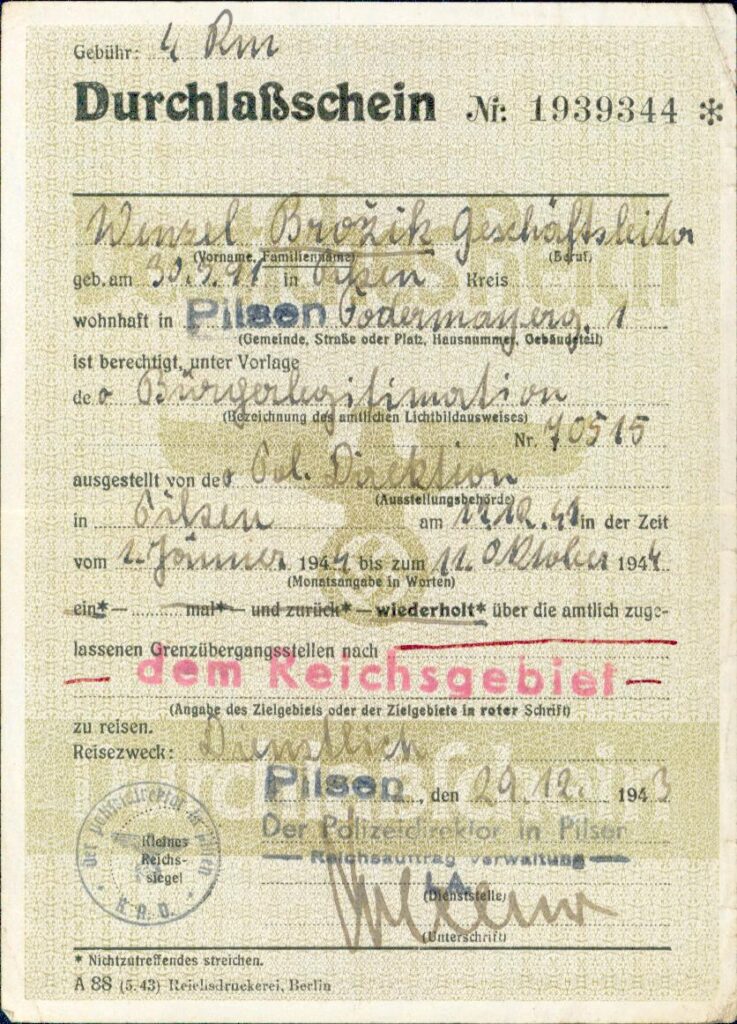 Gebühr: 4 Rm
Durchlaßschein Nr: 1939344 *
Wenzel Brožik Geschäftsleiter
(Vorname, Familienname) (Beruf)
geb. am 30.9.91 in Pilsen Kreis
wohnhaft in Pilsen Podermayerg. 1
(Gemeinde, Straße oder Platz, Hausnummer, Gebäudeteil)
ist berechtigt, unter Vorlage
de Bürgerlegitimation
(Bezeichnung des amtlichen Lichtbildausweises)
Nr. 70515
ausgestellt von de Pol. Direktion
(Ausstellungsbehörde)
in Pilsen am 12.41 in der Zeit
vom 1. Jänner 1944 bis zum 11. Oktober 1944
(Monatsangabe in Worten)
ein* — mal* — und zurück* — wiederholt* über die amtlich zuge-
lassenen Grenzübergangsstellen nach
— dem Reichsgebiet —
(Angabe des Zielgebiets oder der Zielgebiete in roter Schrift)
zu reisen.
Reisezweck: Dienstlich
Pilsen, den 29.12. 1943
Der Polizeidirektor in Pilsen
— Reichsauftragsverwaltung —
I.A.
(Dienststelle)
der Polizeidirektor in Pilsen
Kleines
Reichs-
siegel
(Unterschrift)
* Nichtzutreffendes streichen.
A 88 (5. 43) Reichsdruckerei, Berlin